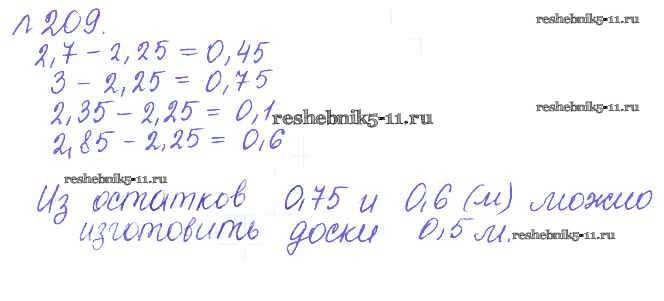 № 209.
reshebnik5-11.ru
2,7 - 2,25 = 0,45
3 - 2,25 = 0,75
2,35 - 2,25 = 0,1
reshebnik5-11.ru
reshebnik5-11.ru
2,85 - 2,25 = 0,6
reshebnik5-11.ru
Из остатков 0,75 и 0,6 (м) можно
изготовить доски 0,5 м.
reshebnik5-11.ru